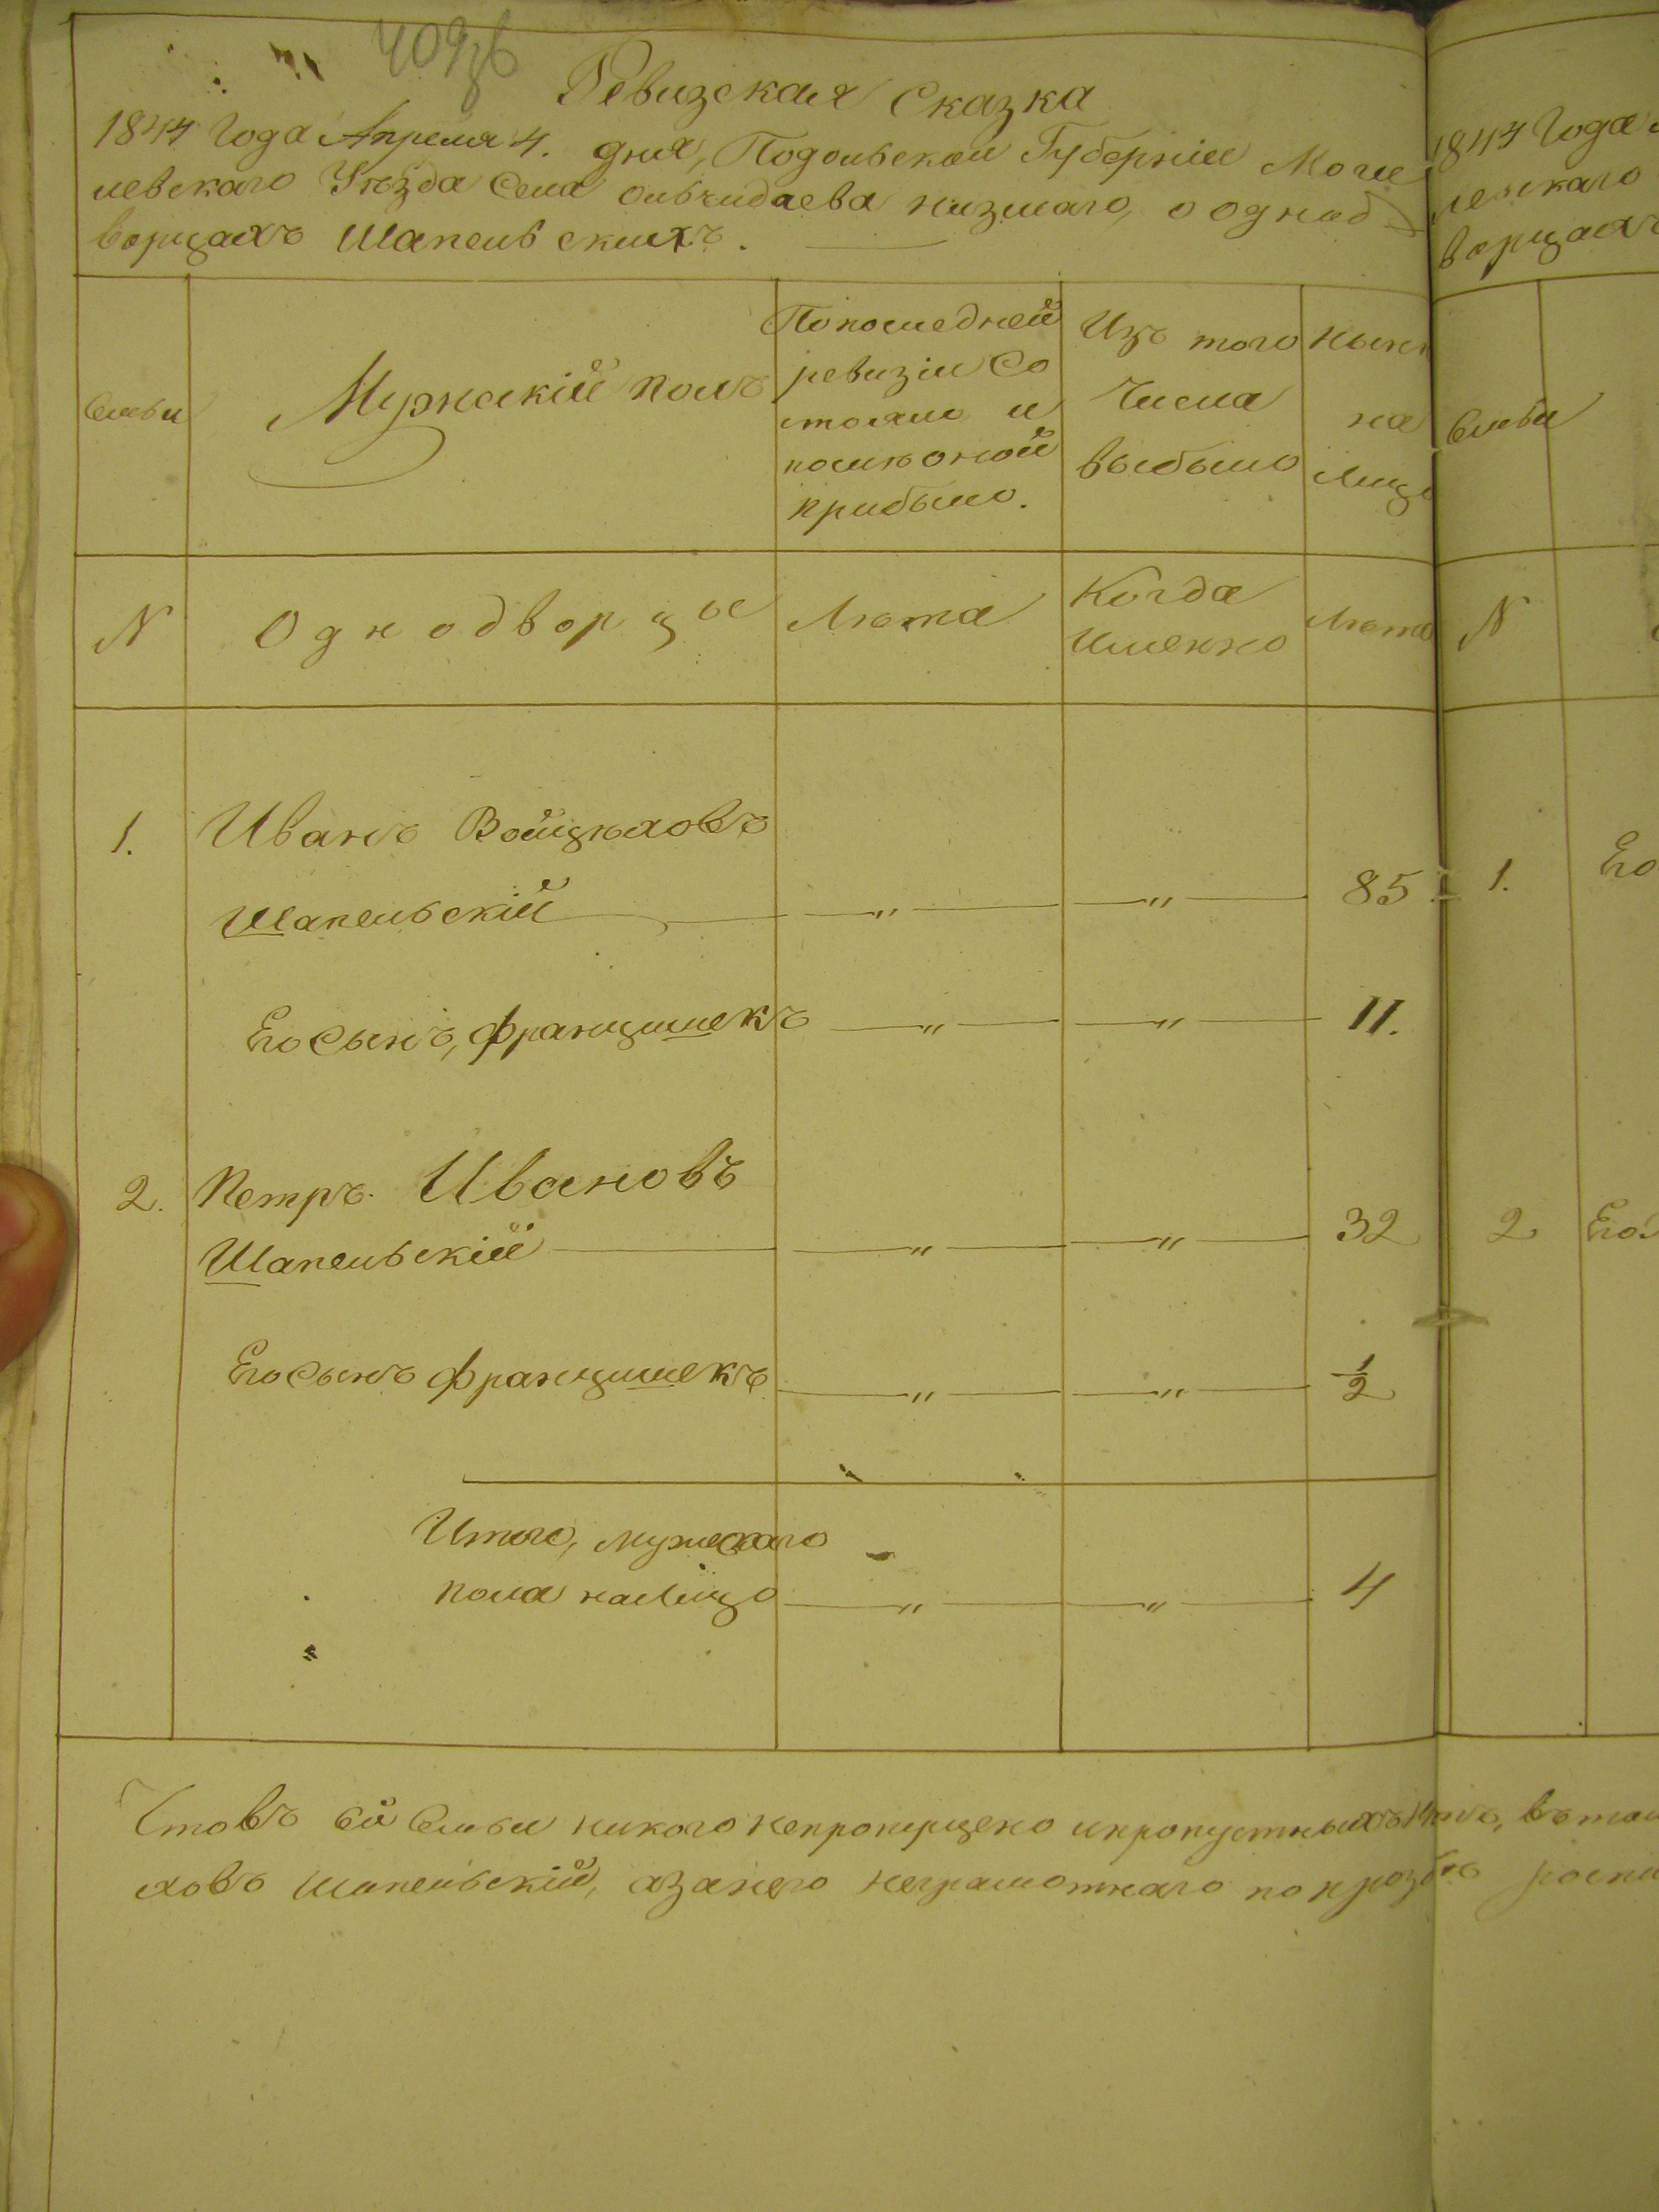 409
Ревизская Сказка
1844 Года Апреля 4. дня, Подольской Губерніи Моги
левскаго Уѣзда Села Ольчидаева низшаго, о однод
ворцахъ Шапельскихъ.
Семьи
Мужескій полъ
По последней
ревизіи Со
стояло и
послѣ оной
прибыло.
Изъ того
Числа
выбыло
Нынѣ
на
лицо
N
Однодворцы
Лѣта
Когда
Именно
Лѣта
1.
Иванъ Войцѣховъ
Шапельскій — „ — — „ — 85
Его Сынъ, Францишекъ — „ — — „ — 11.
2.
Петръ Ивановъ
Шапельскій — — „ — — „ — 32
Его Сынъ Францишекъ — „ — — „ — 1/2
Итого, мужескаго
пола налицо — „ — — „ — 4
Что въ сей Семьи никого непропущено и пропустныхъ нетъ, въ том
ховъ Шапельскій, а за него неграмотнаго по прозбѣ роспи
1844 Года
левскаго
ворцахъ
Семьи
N
1.
Его
2
Его